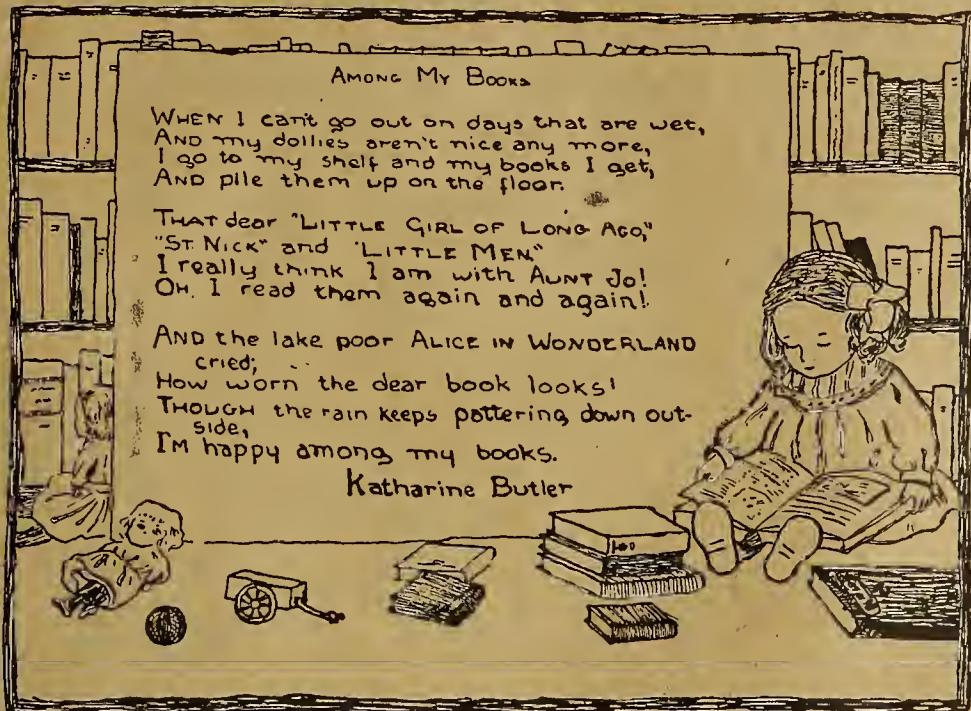 AMONG MY BOOKS
WHEN I can't go out on days that are wet,
AND my dollies aren't nice any more,
I go to my shelf and my books I get,
AND pile them up on the floor.
THAT dear "LITTLE GIRL OF LONG AGO,"
"ST. NICK" and "LITTLE MEN"
I really think I am with AUNT JO!
OH, I read them again and again!
AND the lake poor ALICE IN WONDERLAND
cried;
How worn the dear book looks!
THOUGH the rain keeps pattering down out-
side,
I'M happy among my books.
Katharine Butler